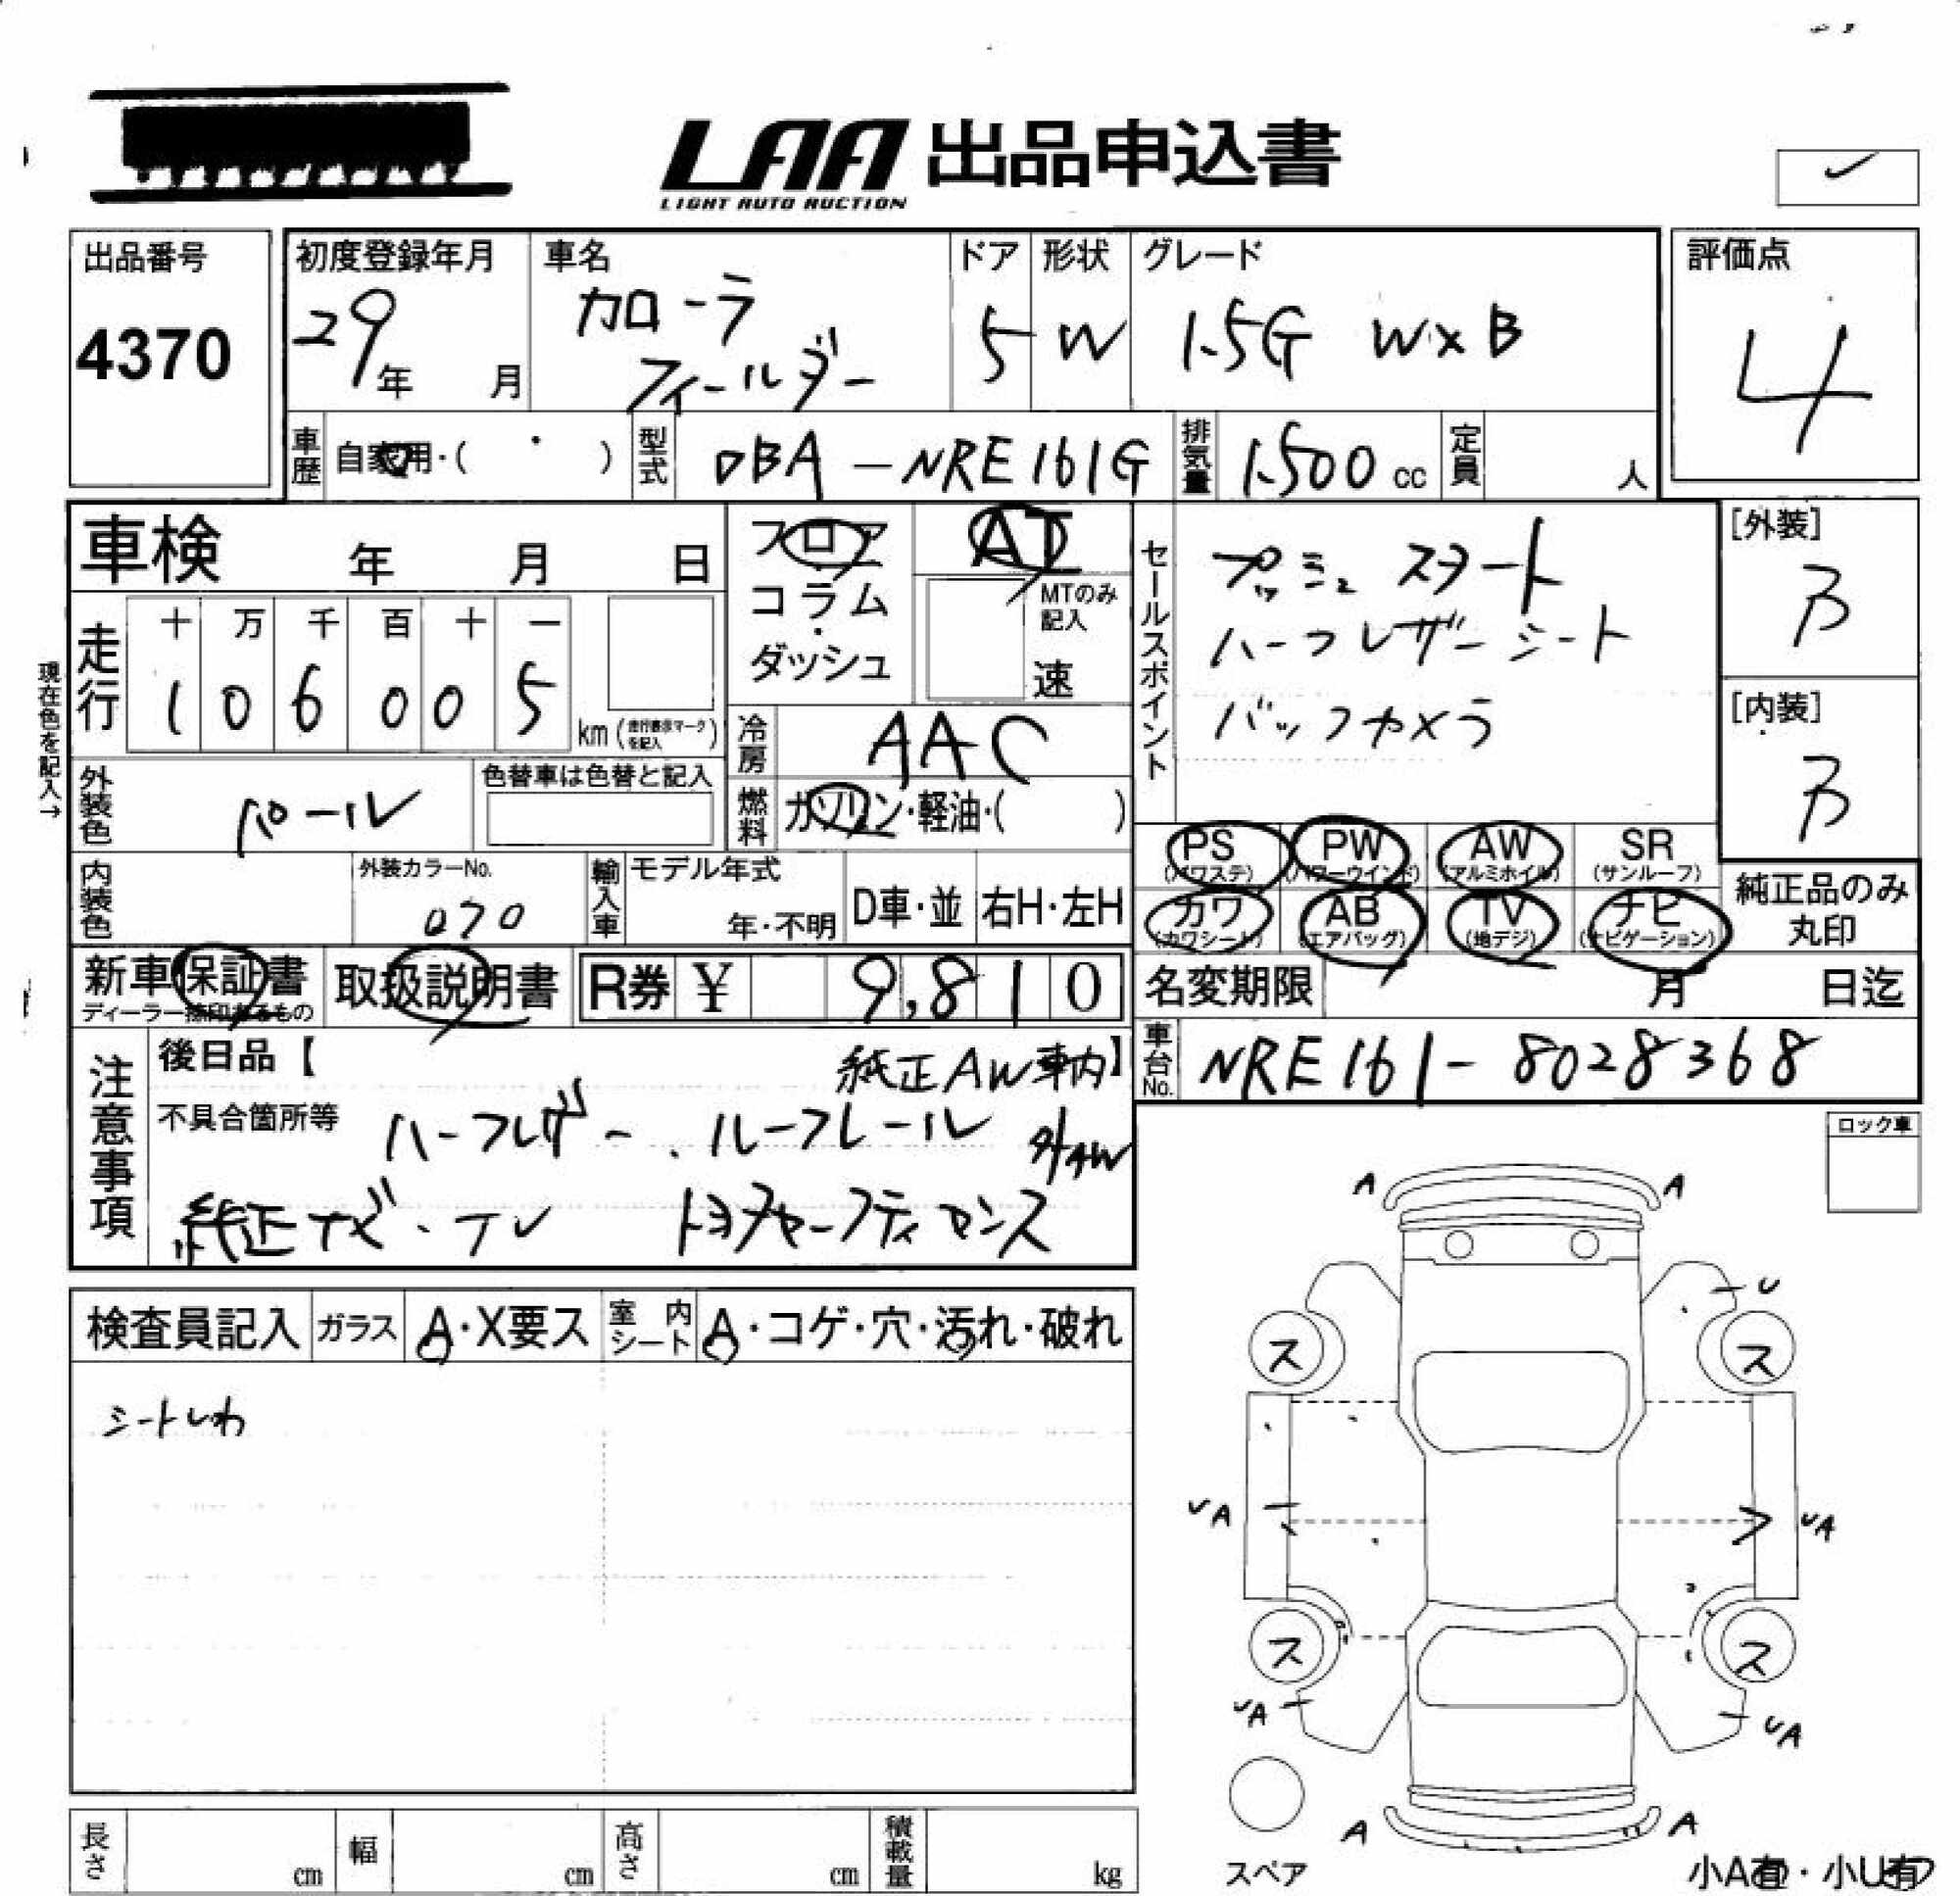 LAA 出品申込書
LIGHT AUTO AUCTION
出品番号
4370
初度登録年月
29年 月
車名
カローラ
フィールダー
ドア
5
形状
W
グレード
1.5G W×B
評価点
4
車歴 自家用・( ・ )
型式 DBA-NRE161G
排気量 1.500 cc
定員 人
車検 年 月 日
フロア
コラム
・
ダッシュ
AT
MTのみ
記入
速
セールスポイント
プッシュ スタート
ハーフレザーシート
バックカメラ
[外装]
B
[内装]
B
現在色を記入→
走行
十 万 千 百 十 一
1 0 6 0 0 5
km(走行表示マークを記入)
冷房 AAC
燃料 ガソリン・軽油・( )
外装色 パール
色替車は色替と記入
内装色
外装カラーNo.
070
輸入車
モデル年式
年・不明
D車・並
右H・左H
PS
(パワステ)
PW
(パワーウインド)
AW
(アルミホイル)
SR
(サンルーフ)
カワ
(カワシート)
AB
(エアバッグ)
TV
(地デジ)
ナビ
(ナビゲーション)
純正品のみ
丸印
新車保証書
取扱説明書
R券 ¥ 9,810
名変期限 月 日迄
車台No. NRE161-8028368
注意事項
後日品【 純正AW車内】
不具合箇所等 ハーフレザー . ルーフレール
外AW
純正ナビ・TV
ロック車
検査員記入
ガラス A・X要ス
室内シート A・コゲ・穴・汚れ・破れ
シートしわ
A A
U
ス ス
UA UA
ス ス
UA UA
A A
スペア
小A有・小U有
長さ cm
幅 cm
高さ cm
積載量 kg